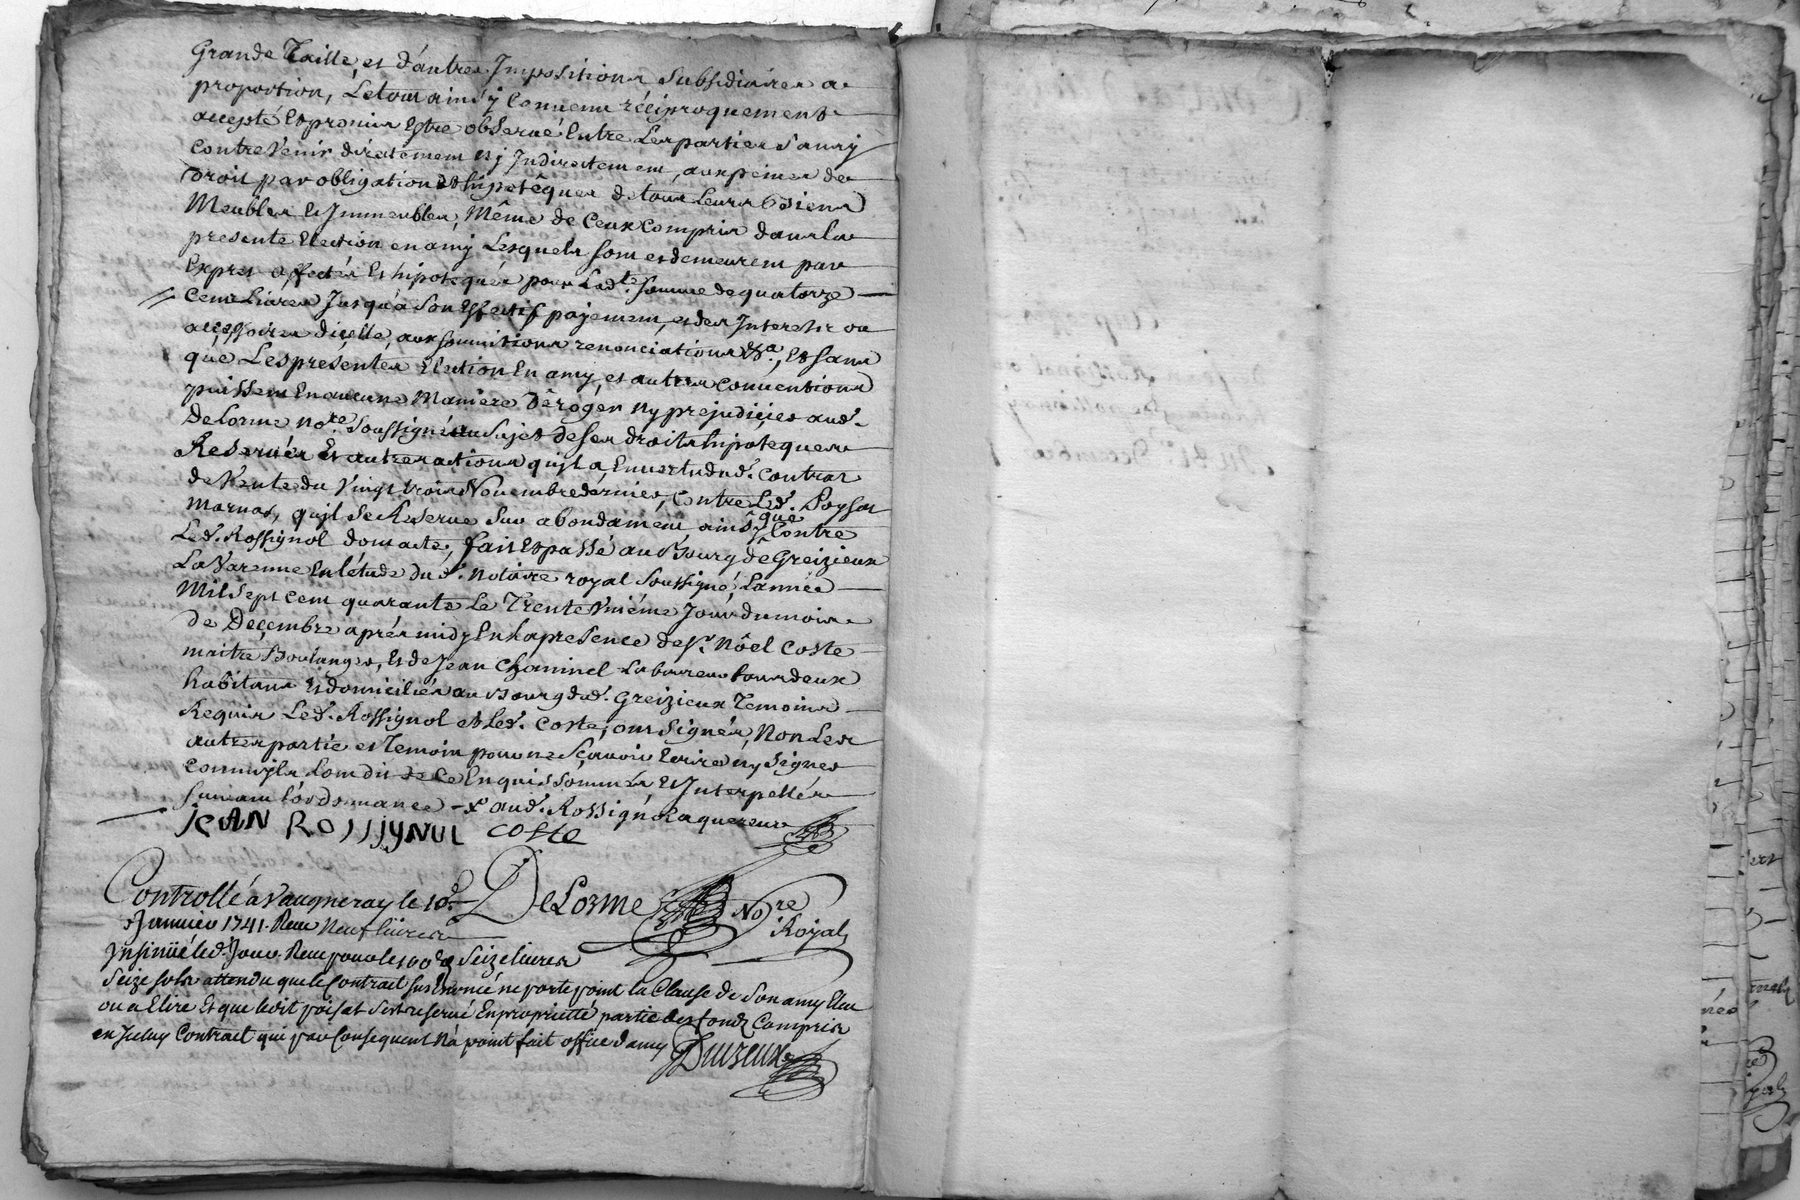 Grande Taille, et d'autres Impositions Subsidiaires a
proportion, Le tout ainsÿ Convenu réciproquement
accepté Et promis Estre observé Entre Les parties sans ÿ
contrevenir directement nÿ Indirectement, aux peines de
Droit par obligation Et hipotéques de tous Leurs Biens
Meubles Et Immeubles, Même de Ceux Compris dans la
presente Election en amÿ Lesquels sont et demeurent par
Exprès affectés Et hipotequés pour Lad.te somme de quatorze
Cent Livres Jusqu'à son Effectif payement, et des Interests ou
accessoires d'icelle, aux soumitions renonciations &a, Et sans
que Les presentes Election En amy, et autres Conventions
puissent En aucune Maniére Dêroger ny prejudicier aud.
DeLorme no.re Soussigné au Sujet de ses droits hipoteques
Reservés Et autres actions qu'jl a En vertu dud. Contrat
de Vente du Vingt trois Novembre dernier, Contre Led. Poysat
Marnas, qu'jl se Reserve Sur abondament, ainsÿ que Contre
Led. Rossignol dont acte, fait Et passé au Bourg de Greizieux
La Varenne En L'étude du d. Notaire royal Soussigné, L'année
Mil sept cent quarante Le Trente Uniéme Jour du mois
de Decembre aprés midy En La presence de s.r Nôel Coste
maitre Boulanger, Et de Jean Chaminel Laboureur tous deux
habitans Et domiciliés au Bourg dud. Greizieux Temoins
Requis Led. Rossignol et Led. Coste, ont Signés, Non Les
autres partie et Temoin pour ne Sçavoir Ecrire ny Signer
comme jls L'ont dit de ce Enquis Sommés Et Interpellés
suivant L'ordonnance - x.t aud. Rossignol aquereur
jEAN ROSSIJYNUL coste
Controllé à Vaugneray le 10.e DeLorme No.re
Janvier 1741. Reçu Neuf livres Royal
Insinüé led. Jour. Reçu pour le 100.e Seize livres
Seize sols attendu que le Contrat sus énoncé ne porte point la Clause de Son amy Elu
ou a Elire Et que ledit poisat S'est reservé En proprietté partie des fondz Compris
en Iceluy Contract qui par Consequent N'a point fait office d'amy Duizeux